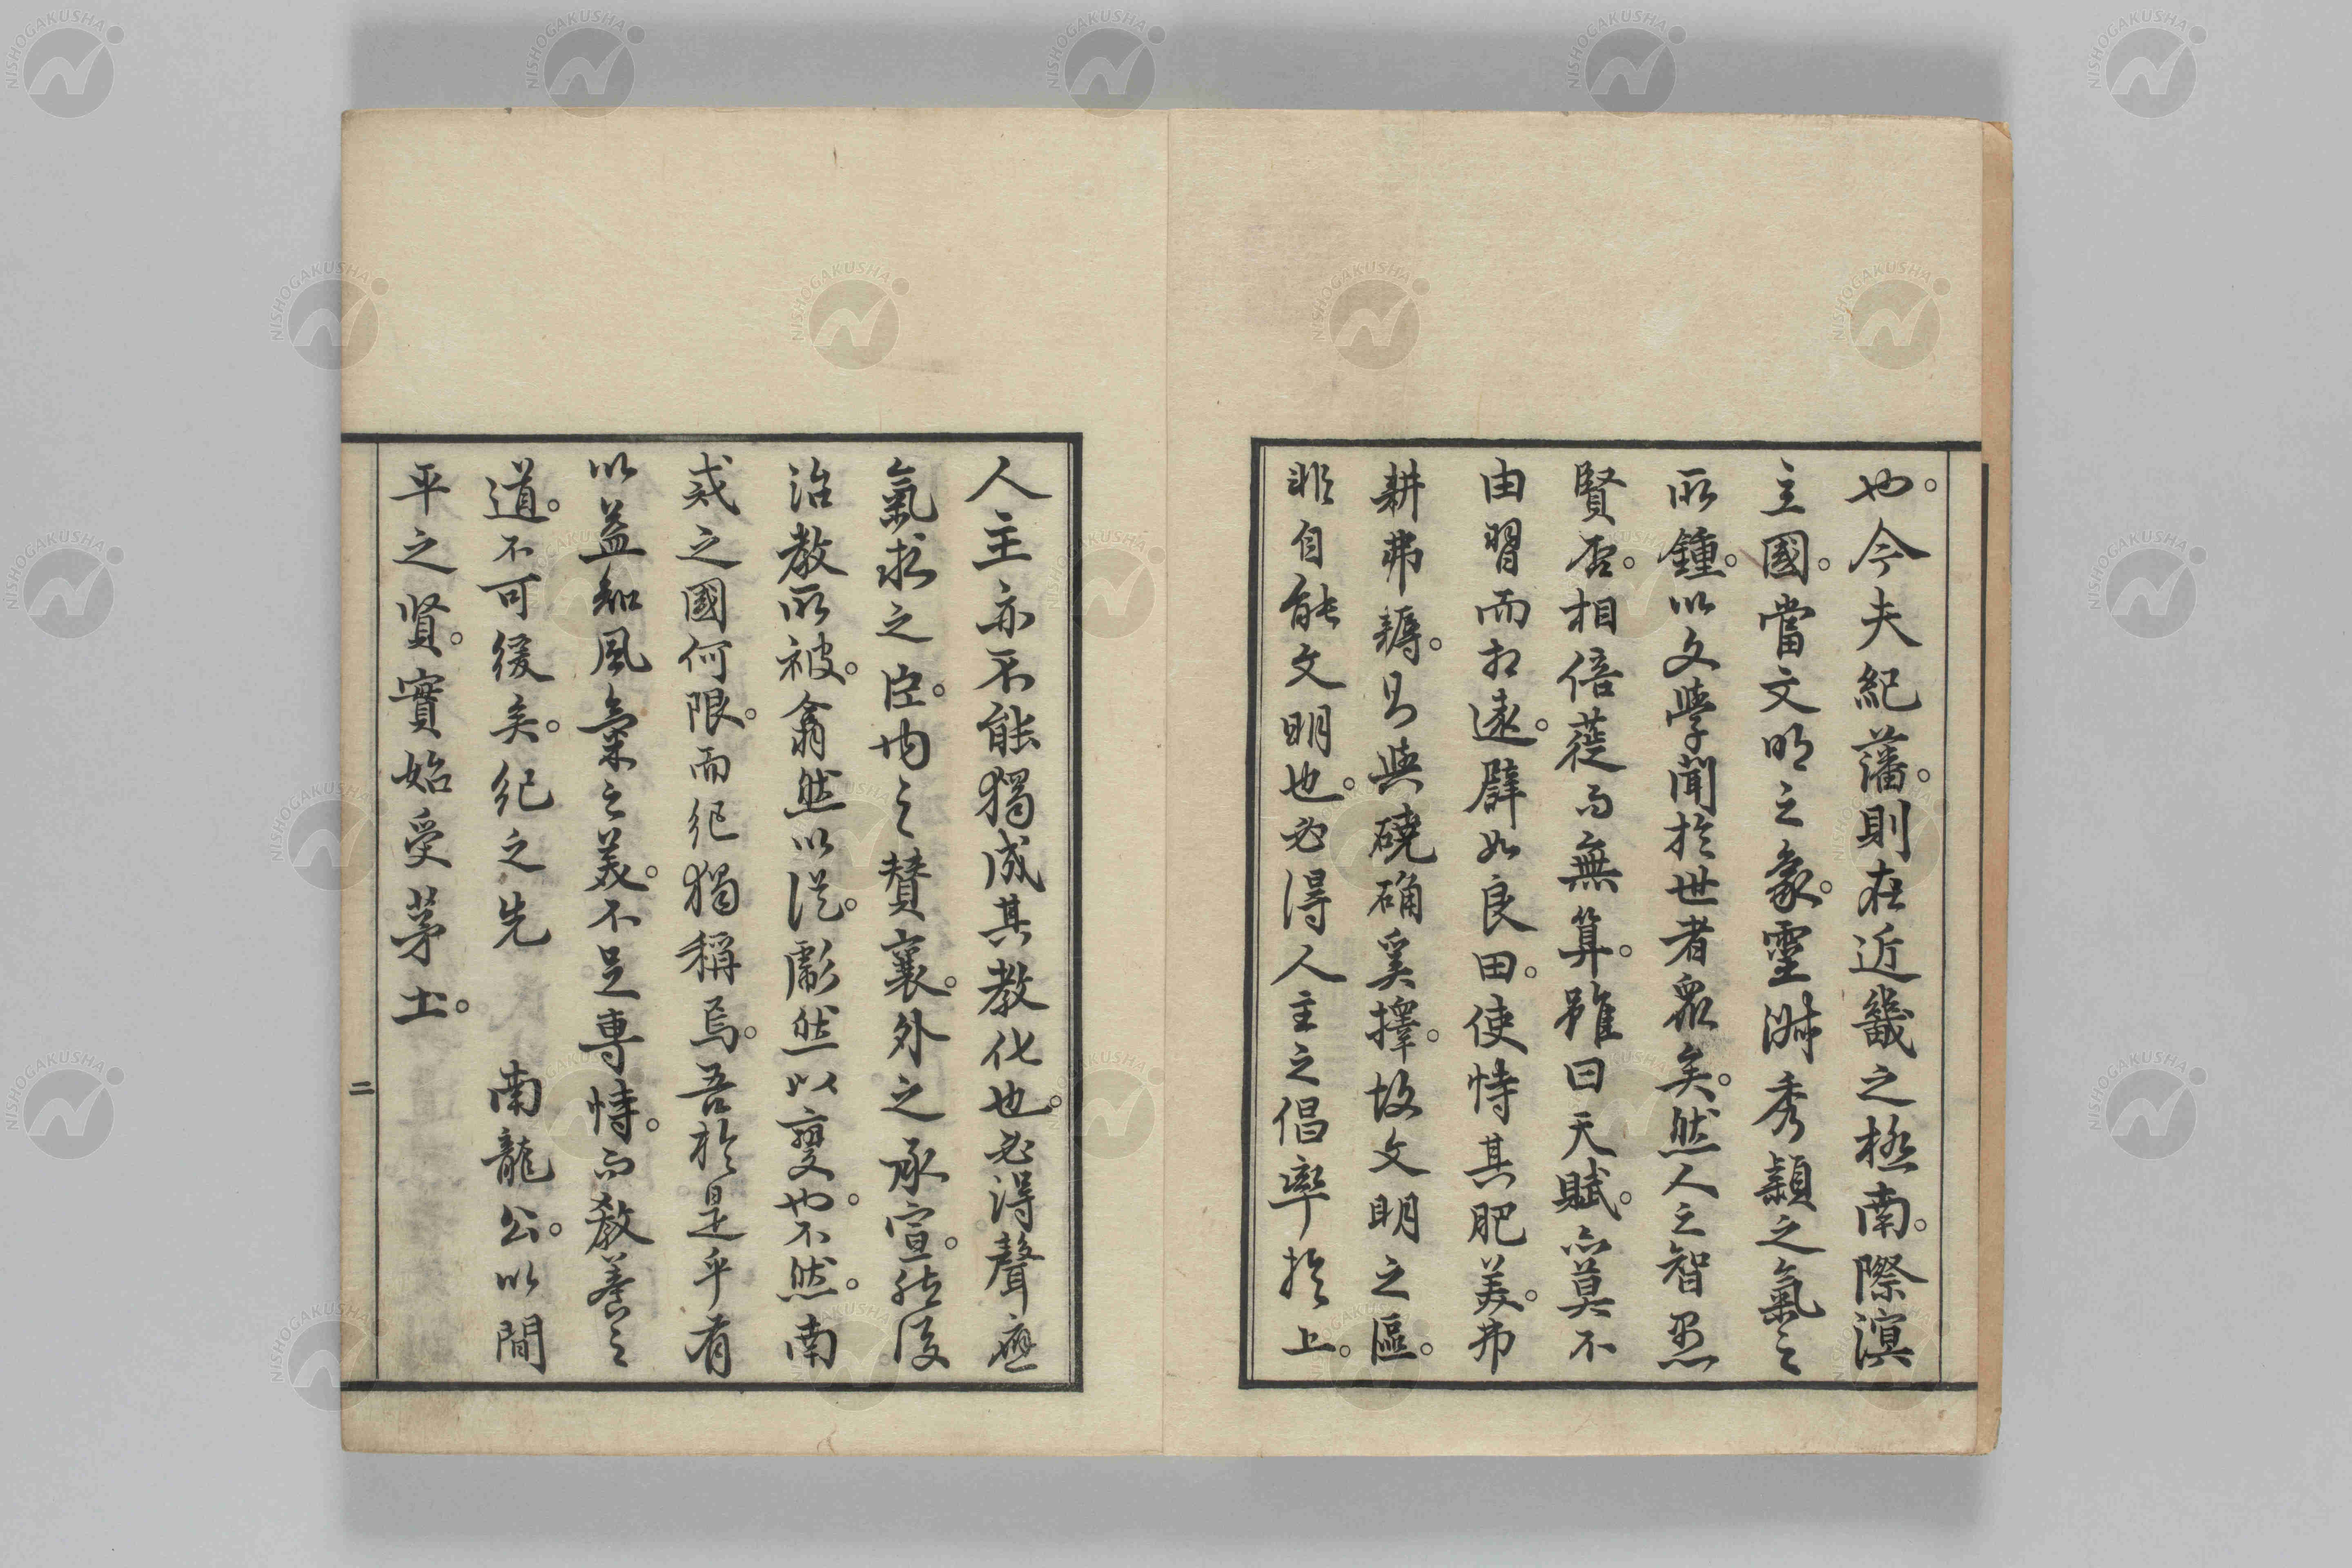 也。今夫紀藩。則在近畿之極南。際溟
主國。當文明之象。靈淋秀穎之氣之
所鍾。以文學聞於世者衆矣。然人之智愚
賢否。相倍蓰而無算。雖曰天賦。亦莫不
由習而相遠。譬如良田。使恃其肥美。弗
耕弗耨。曷與磽确奚擇。故文明之區。
非自能文明也。必得人主之倡率於上。
人主亦不能獨成其教化也。必得聲應
氣求之臣。內之贊襄。外之承宣。然後
治教所被。翕然以從。彪然以變也。不然。南
戎之國何限。而紀獨稱焉。吾於是乎有
以益知風氣之美。不足專恃。而教養之
道。不可緩矣。紀之先 南龍公。以間
平之賢。實始受茅土。
二
NISHOGAKUSHA